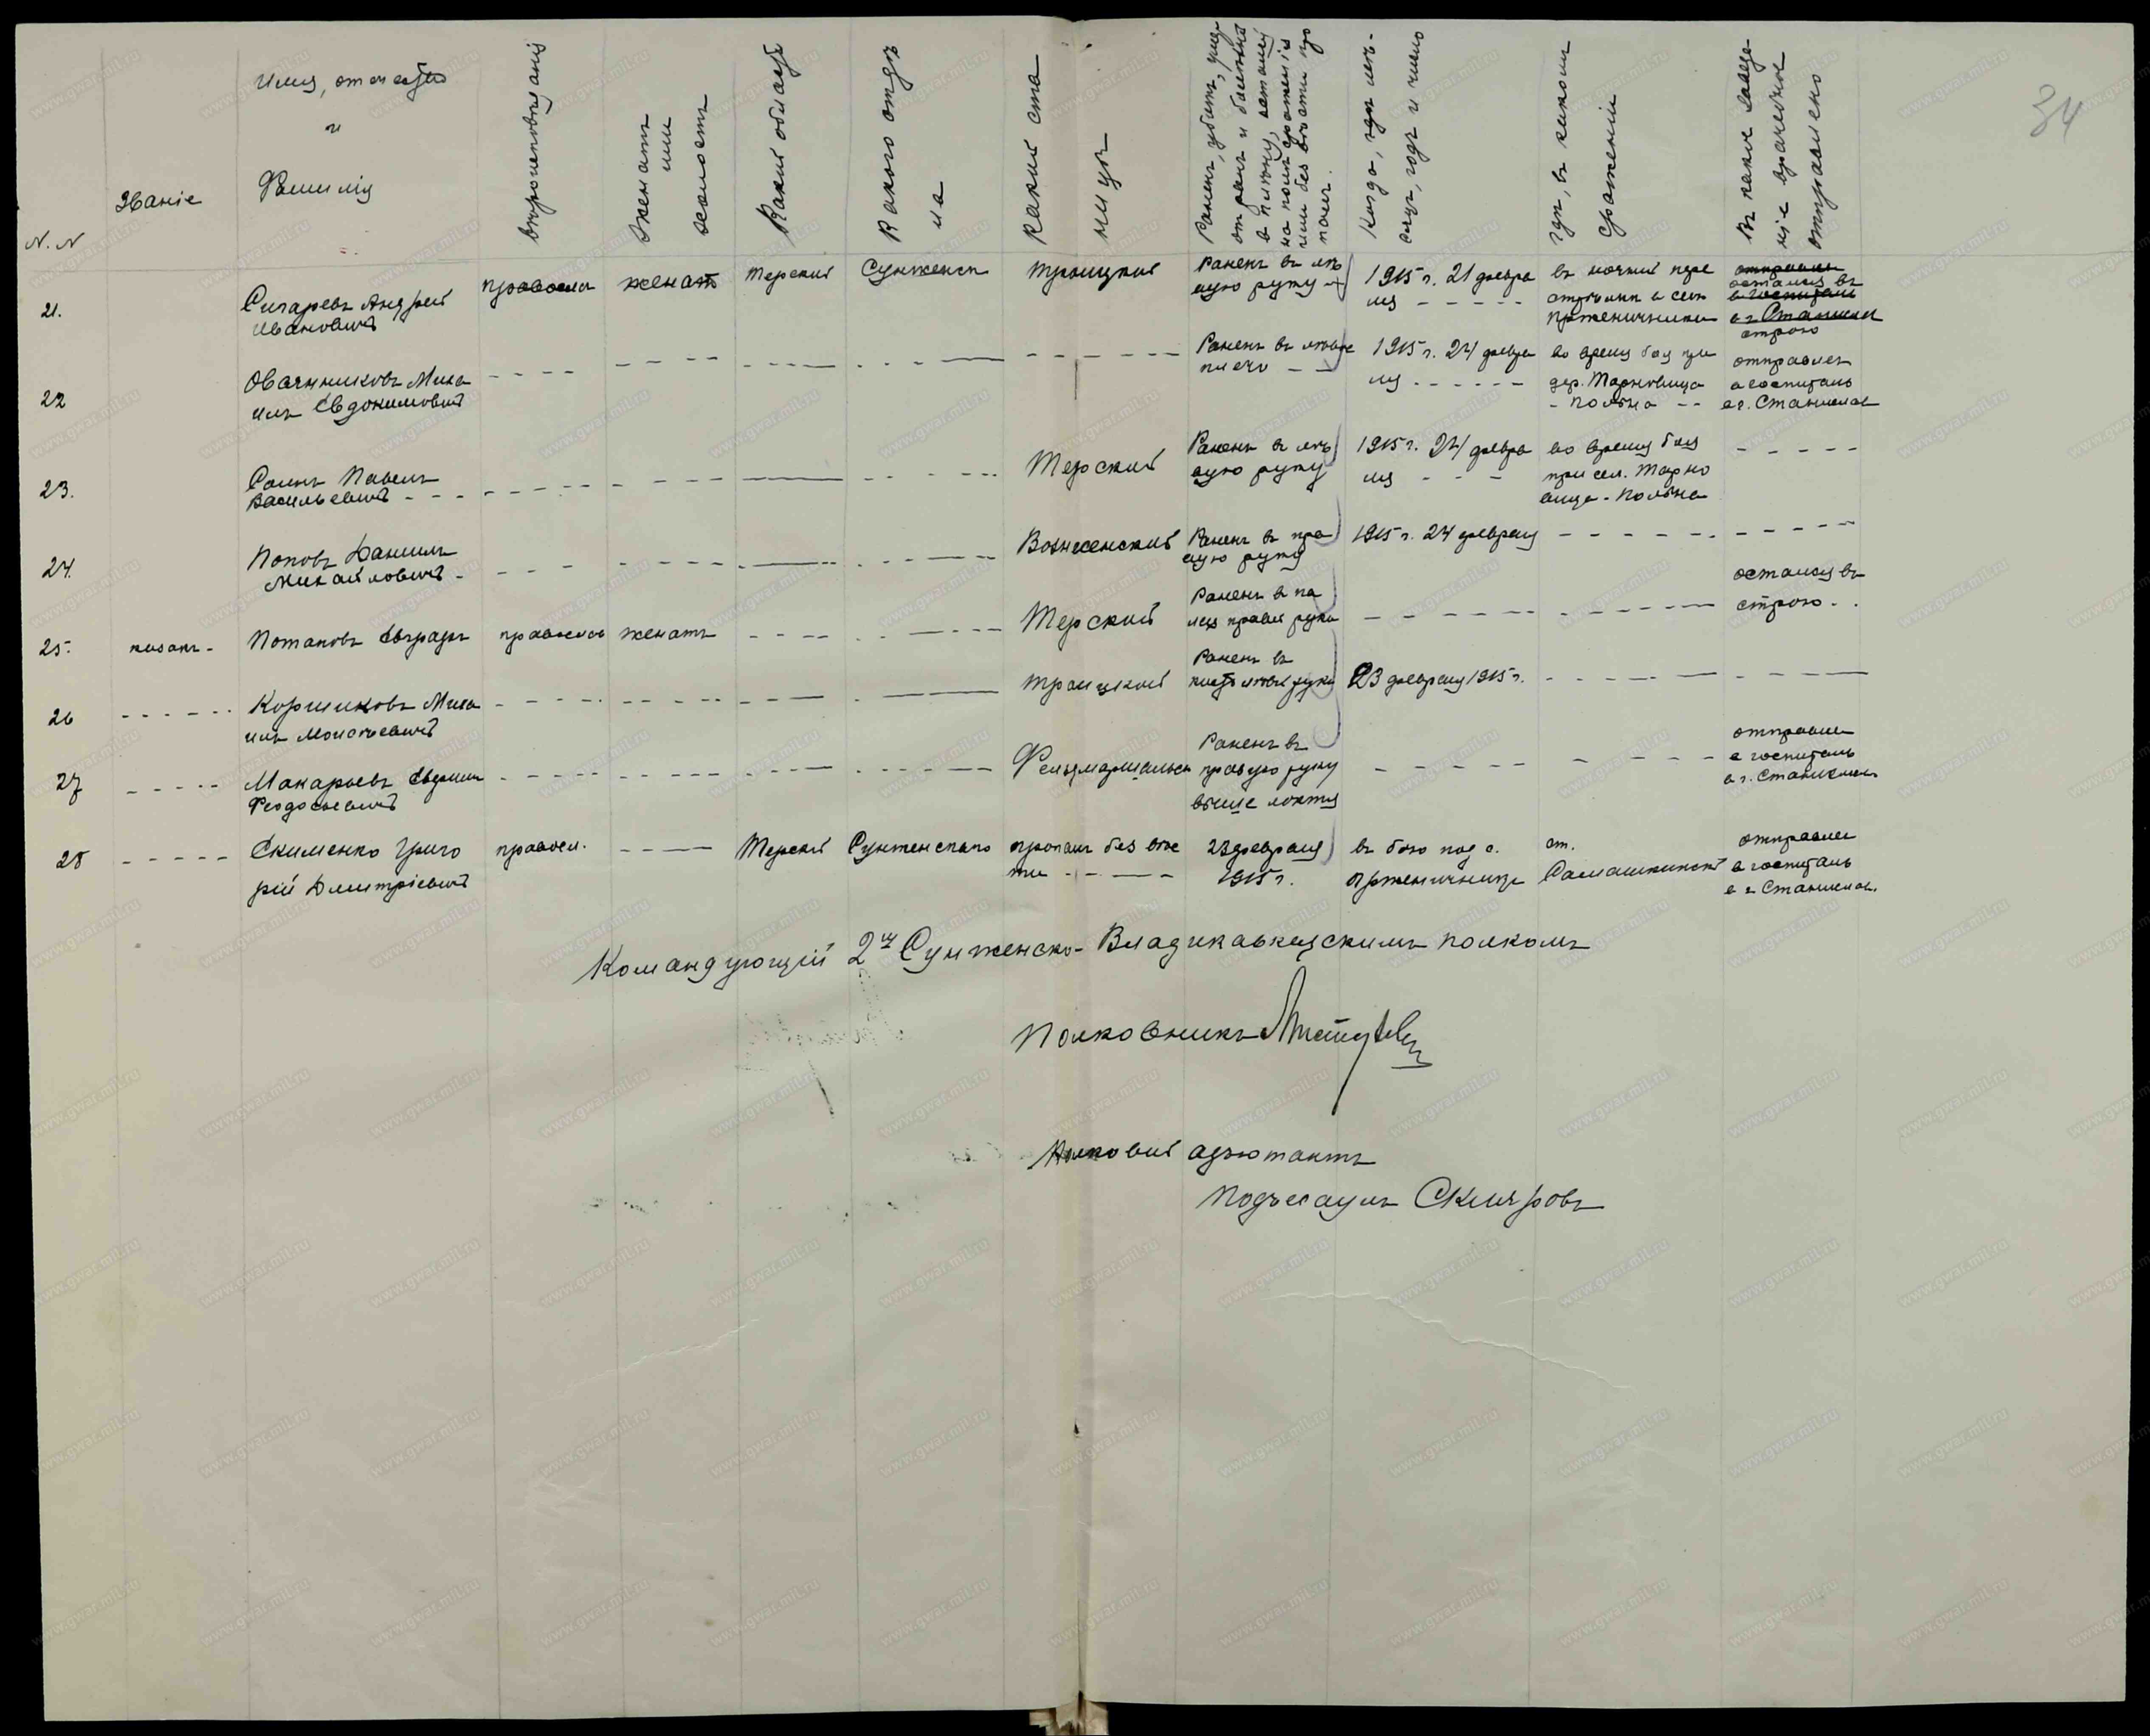 34
N. N
Званіе
Имя, отчество
и
Фамилія
вѣроисповѣданія
Женатъ
или
холостъ
Какой области
Какого отдѣ
ла
Какой ста
ницы
Раненъ, убитъ, умер
отъ ранъ и болезней
в плену, оставлен
на полѣ сраженія
или без вѣсти про
палъ.
Когда, мѣ-
сяцъ, годъ и число
Гдѣ, въ какомъ
сраженіи
Въ какое заведе-
ніе врачебное
отправлено
21.
Сигаревъ Андрей
Ивановичъ
православ
женат
Терской
Сунженск
Троицкой
Раненъ въ лѣ
вую руку
1915 г. 21 февра
ля - - - - -
въ ночной пере
стрѣлки в селѣ
Пшеничники
остался въ
строю
22
Овчинниковъ Миха
илъ Евдокимович
Раненъ въ лѣвое
плечо - -
1915 г. 24 февра
ля - - - - - -
во время боя при
дер. Торновица
- Польна - -
отправлен
в госпиталь
в г. Станислав
23.
Павелъ
Васильевич - - -
Терской
Раненъ въ лѣ
вую руку
1915 г. 24 февра
ля - - -
во время боя
при сел. Торно
вица - Польна
- - - - -
24.
Поповъ Данилъ
Михайлович -
Вознесенской
Раненъ въ пра
вую руку
1915 г. 24 февраля
- - - - - -
- - - - -
25.
казакъ -
Потаповъ Евграфъ
православ
женатъ
Терской
Раненъ в па
лец правой руки
остался въ
строю - .
26
Коршиковъ Миха
илъ
Троицкой
Раненъ въ
кисть лѣвой руки
23 февраля 1915 г.
27
Макарьевъ
Феодосьевич
Фельдмаршальск
Раненъ въ
правую руку
выше локтя
отправлен
в госпиталь
в г. Станислав
28
Скименко Григо
рій Дмитріевич
правосл.
Терской
Сунженскаго
пропалъ без вѣс
ти - - - -
23 февраля
1915 г.
въ бою под с.
Пшеничники
ст.
Самашкинской
отправлен
в госпиталь
в г. Станислав.
Командующій 2мъ Сунженско-Владикавказскимъ полкомъ
Полковникъ
Полковой адъютантъ
Подъесаулъ